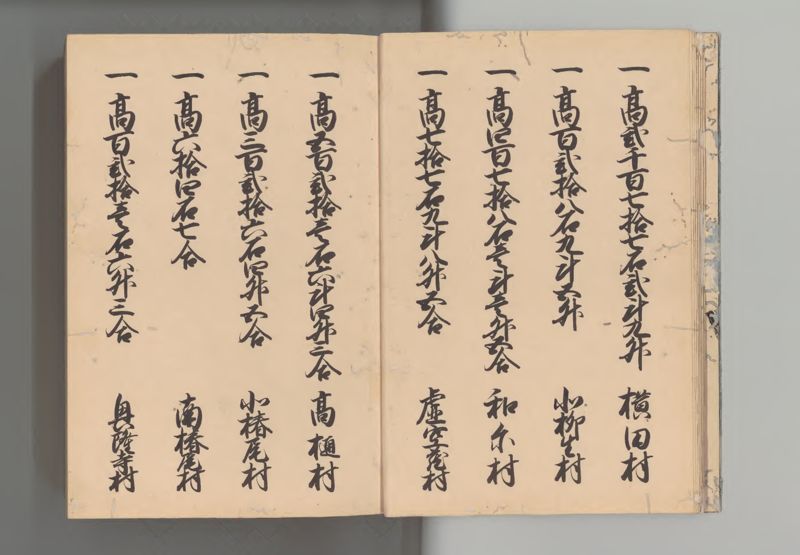 一 高貳千百七拾七石貳斗九升 横田村
一 高百貳拾八石九斗五升 小柳生村
一 高四百七拾八石壱斗壱升五合 和尓村
一 高七拾七石九斗八升五合 虚空蔵村
一 高五百貳拾壱石六斗四升三合 高樋村
一 高三百貳拾六石四升五合 北椿尾村
一 高六拾四石七合 南椿尾村
一 高百貳拾壱石六升三合 興隆寺村